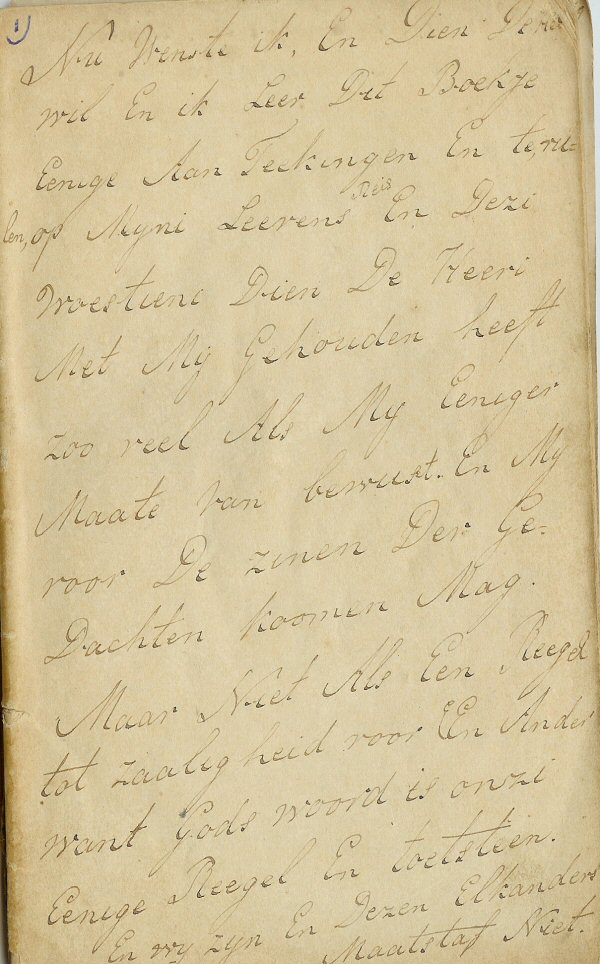 1)
Nu Wenste ik, En Dien De Heer
wil En ik Leer Dit Boekje
Eenige Aan Teekingen En te vu=
len, op Myni Leevens Reis En Dezi
woestiene Dien De Heeri
Met My Gehouden heeft
zoo veel Als My Eeniger
Maate van bewust. En My
voor De zinen Der Ge=
Dachten koomen Mag.
Maar Niet Als Een Reegel
tot zaaligheid voor EEn Ander
want Gods woord is onzi
Eenige Reegel En toetsteen.
En wy zyn En Dezen Elkanders
Maatstaf Niet.